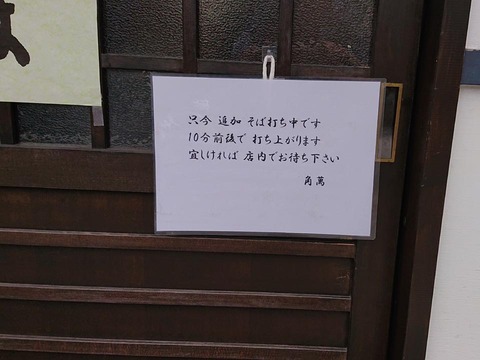 只今 追加 そば打ち中です
10分前後で 打ち上がります
宜しければ 店内でお待ち下さい
角萬